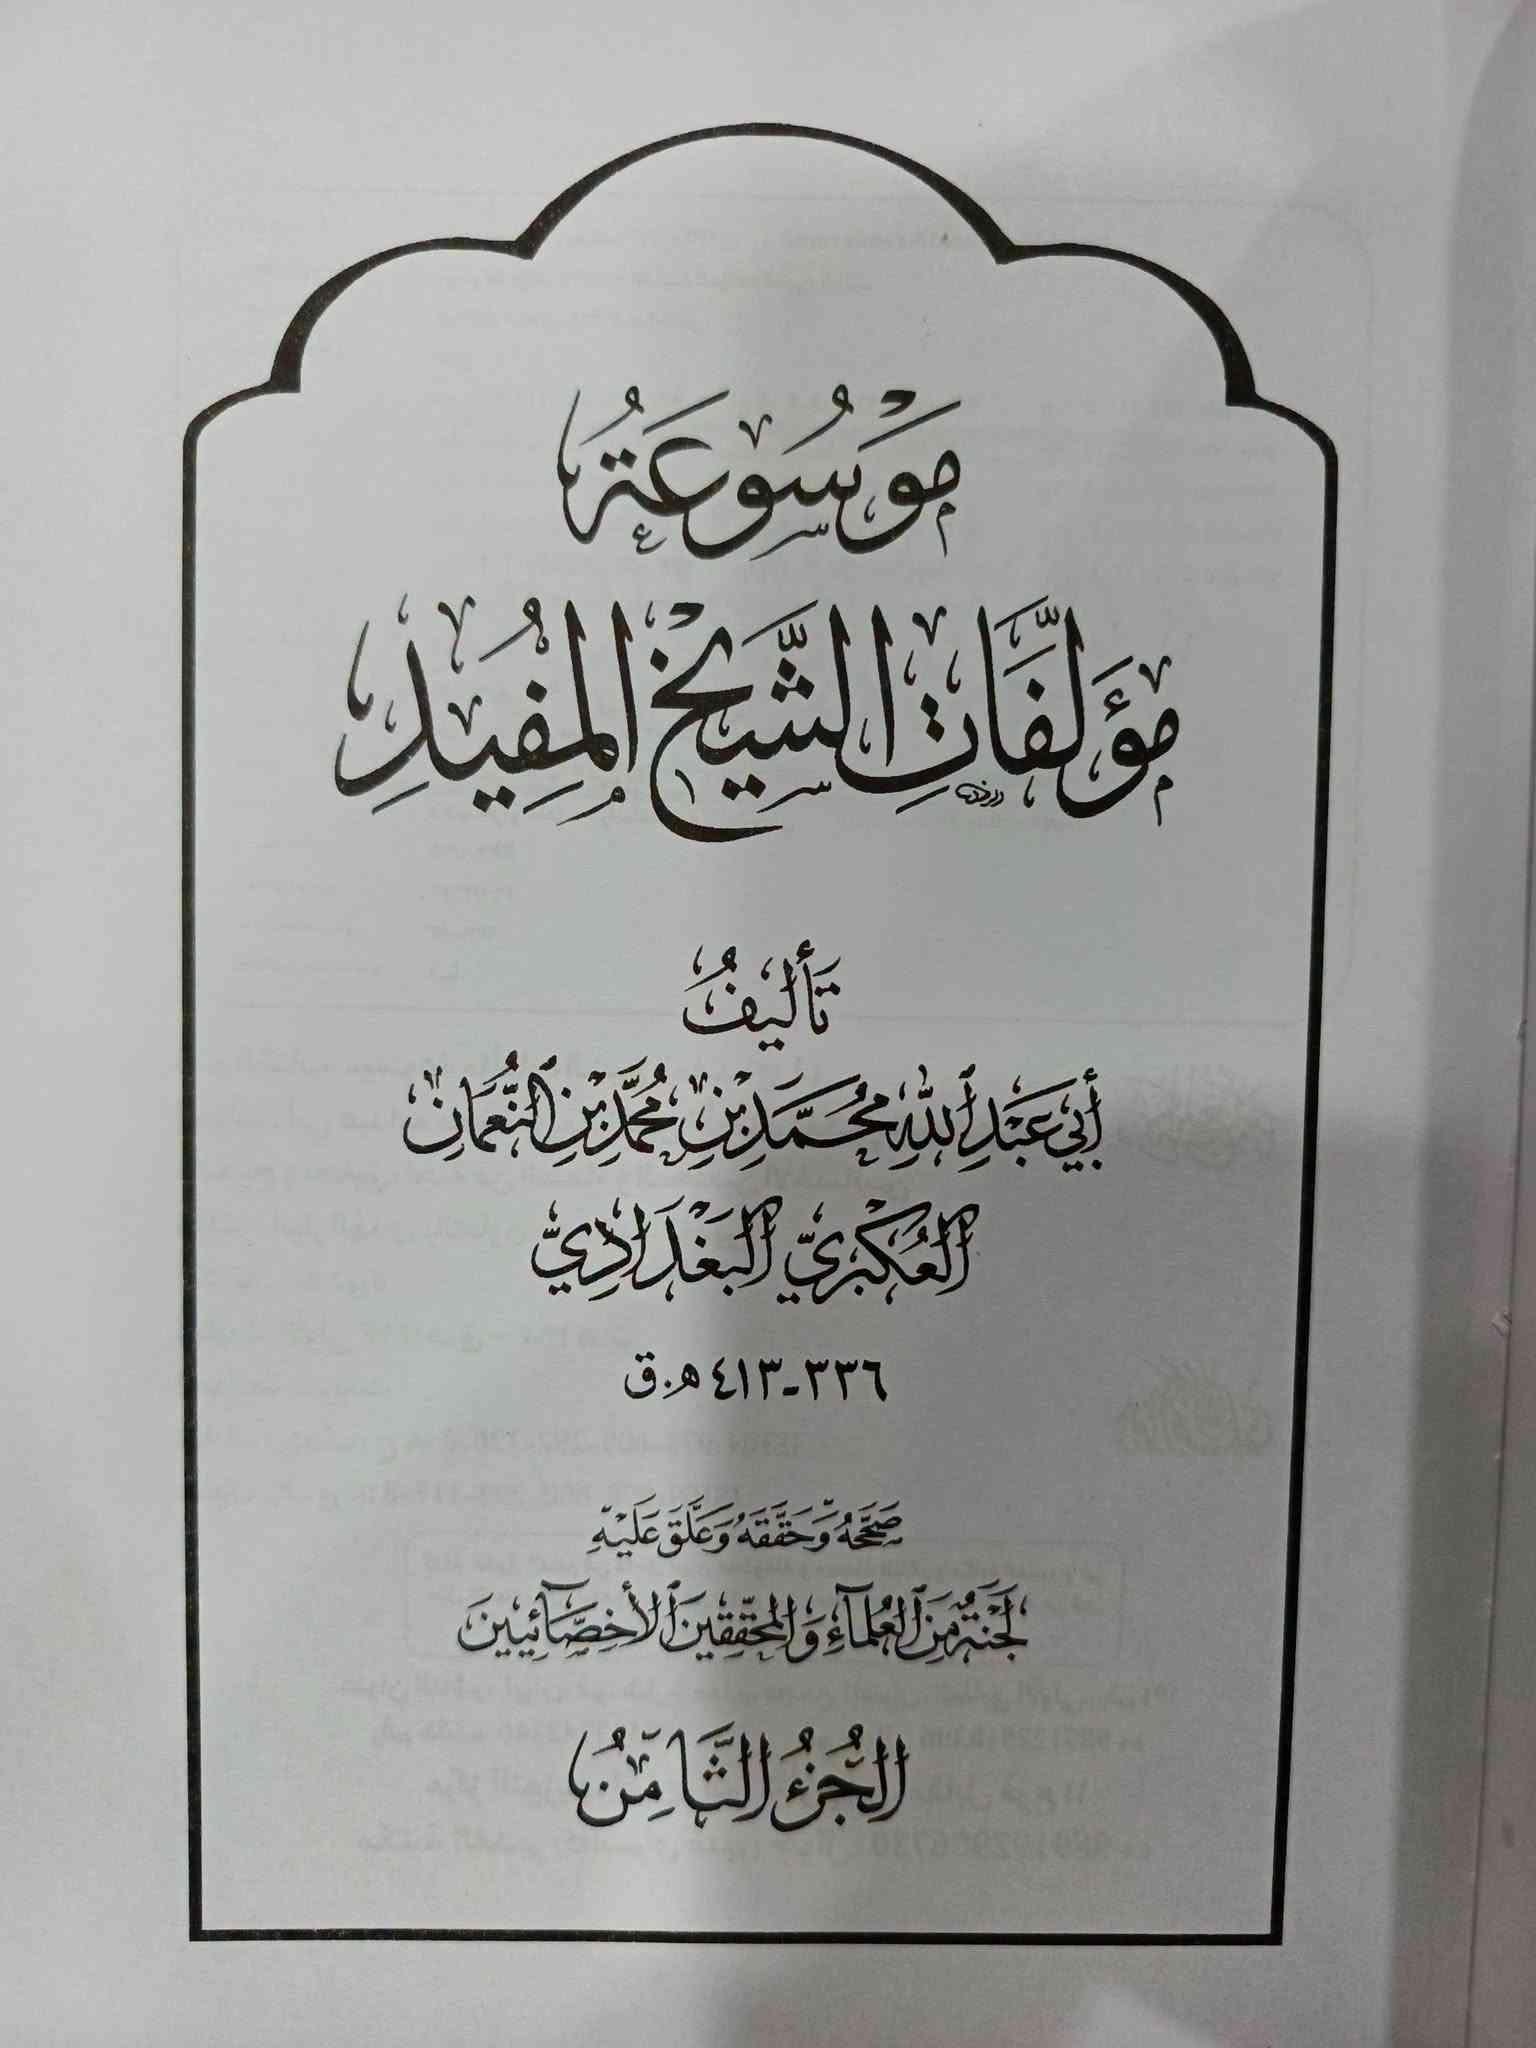 مَوْسُوعَةُ
مُؤَلَّفَاتِ الشَّيْخِ المُفِيدِ
تَأليفُ
أَبِي عَبْدِ اللهِ مُحَمَّدِ بْنِ مُحَمَّدِ بْنِ النُّعْمَانِ
العُكْبَرِيِّ البَغْدَادِيِّ
٣٣٦-٤١٣ هـ.ق
صَحَّحَهُ وَحَقَّقَهُ وَعَلَّقَ عَلَيْهِ
لَجْنَةٌ مِنَ العُلَمَآءِ وَالمُحَقِّقِينَ الأَخِصَّآئِيِينَ
الجُزْءُ الثَّامِنُ